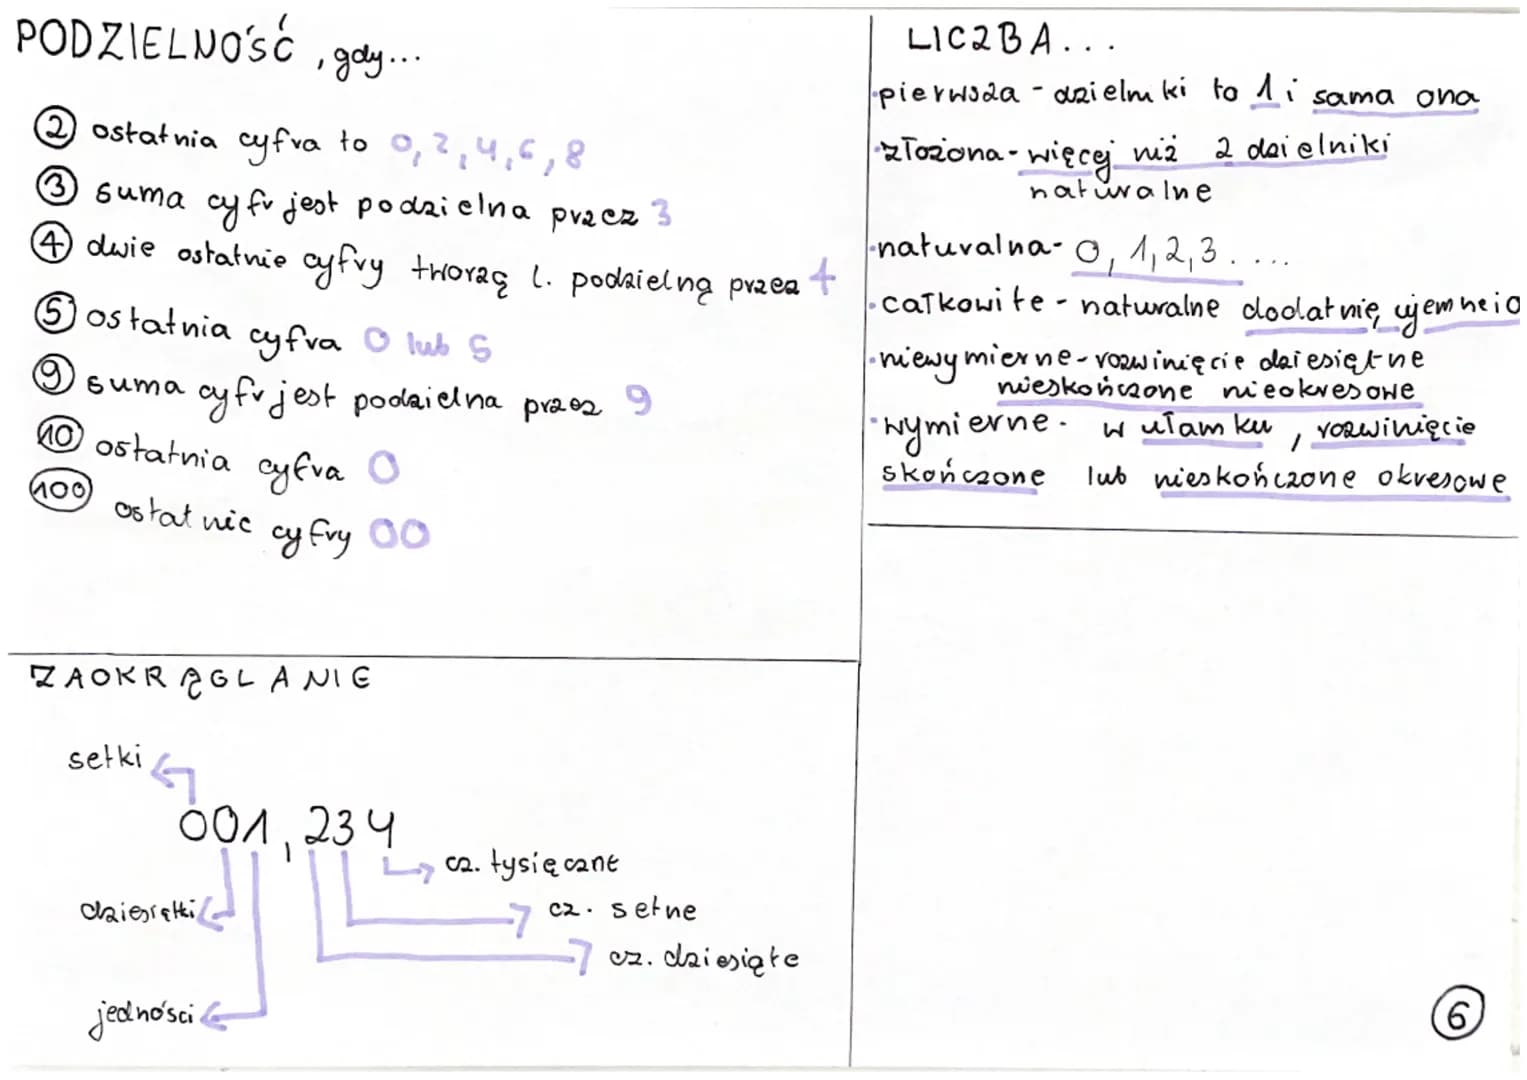 PODZIELNOŚĆ, gdy...
② ostatnia cyfra to 0, 2, 4, 6, 8
③ suma cyfr jest podzielna przez 3
④ dwie ostatnie cyfry tworzą l. podzielną przez 4
⑤ ostatnia cyfra 0 lub 5
⑨ suma cyfr jest podzielna przez 9
⑩ ostatnia cyfra 0
100 ostatnie cyfry 00
LICZBA...
• pierwsza - dzielniki to 1 i sama ona
• złożona - więcej niż 2 dzielniki
naturalne
• naturalna - 0, 1, 2, 3....
• całkowite - naturalne dodatnie, ujemne i 0
• niewymierne - rozwinięcie dziesiętne
nieskończone nieokresowe
• wymierne - w ułamku, rozwinięcie
skończone lub nieskończone okresowe
ZAOKRĄGLANIE
setki
001,234
cz. tysięczne
dziesiątki
cz. setne
cz. dziesiąte
jedności
6